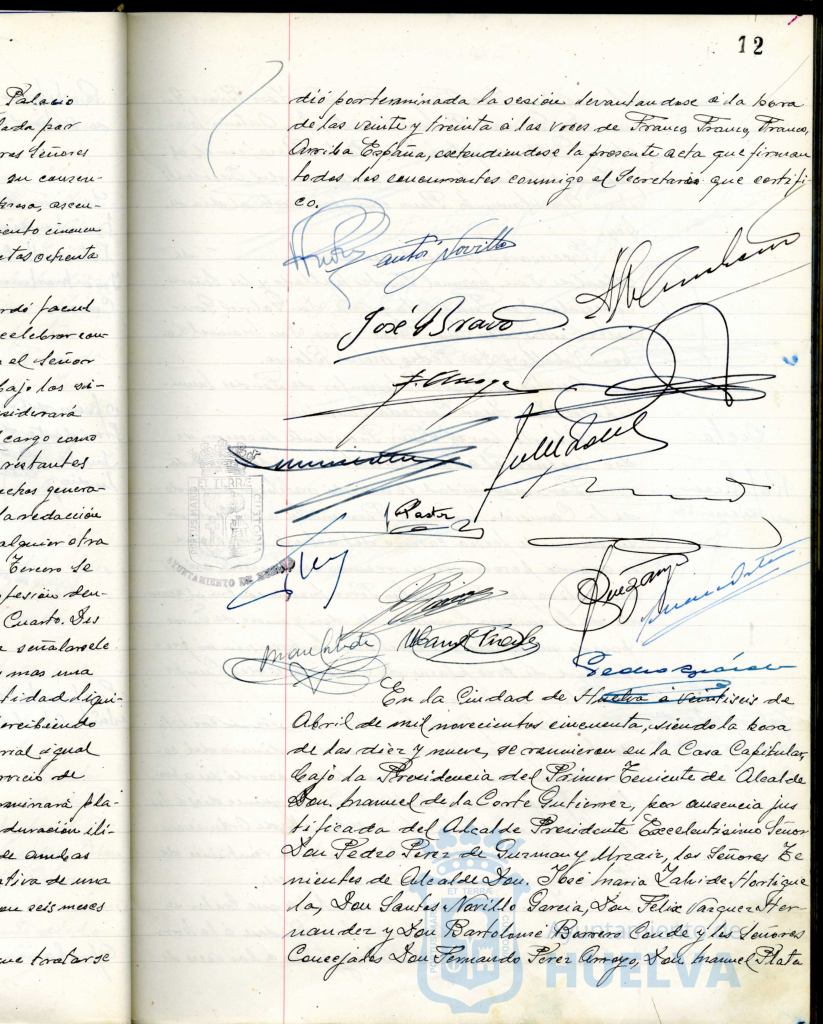 Palacio
lada por
res Señores
su consen-
ceso, ascen-
iento cincuen
etas ochenta
rdó facul
celebrar con
el Señor
bajo las si-
siderará
cargo como
restantes
echos genera-
la redacción
alquier otra
Tercero Se
fesión den-
Cuarto. Des
señalarsele
mas una
tidad liqui-
percibiendo
rial igual
rvicio de
minará pla-
duración ili-
de ambas
ativa de una
seis meses
que tratarse
12
dió por terminada la sesión levantandose á la hora
de las veinte y treinta á las voces de Franco, Franco, Franco,
Arriba España, extendiendose la presente acta que firman
todos los concurrentes conmigo el Secretario que certifi
co.
Santos Novillo
José Bravo
F. Arroyo
Pastor
EL TERRÆ
PORTUS MARIS
CUSTODIO
AYUNTAMIENTO DE HUELVA
En la Ciudad de Huelva á veintiseis de
Abril de mil novecientos cincuenta, siendo la hora
de las diez y nueve, se reunieron en la Casa Capitular,
bajo la Presidencia del Primer Teniente de Alcalde
Don Manuel de la Corte Gutierrez, por ausencia jus
tificada del Alcalde Presidente Excelentisimo Señor
Don Pedro Perez de Guzman y Urzaiz, los Señores Te
nientes de Alcalde Don José Maria Zalvide Hortigue
la, Don Santos Novillo Garcia, Don Felix Vazquez Her
nandez y Don Bartolomé Borrero Conde y los Señores
Concejales Don Fernando Perez Arroyo, Don Manuel Plata
ET TERRÆ
PORTUS MARIS
CUSTODIO
Ayuntamiento de
HUELVA